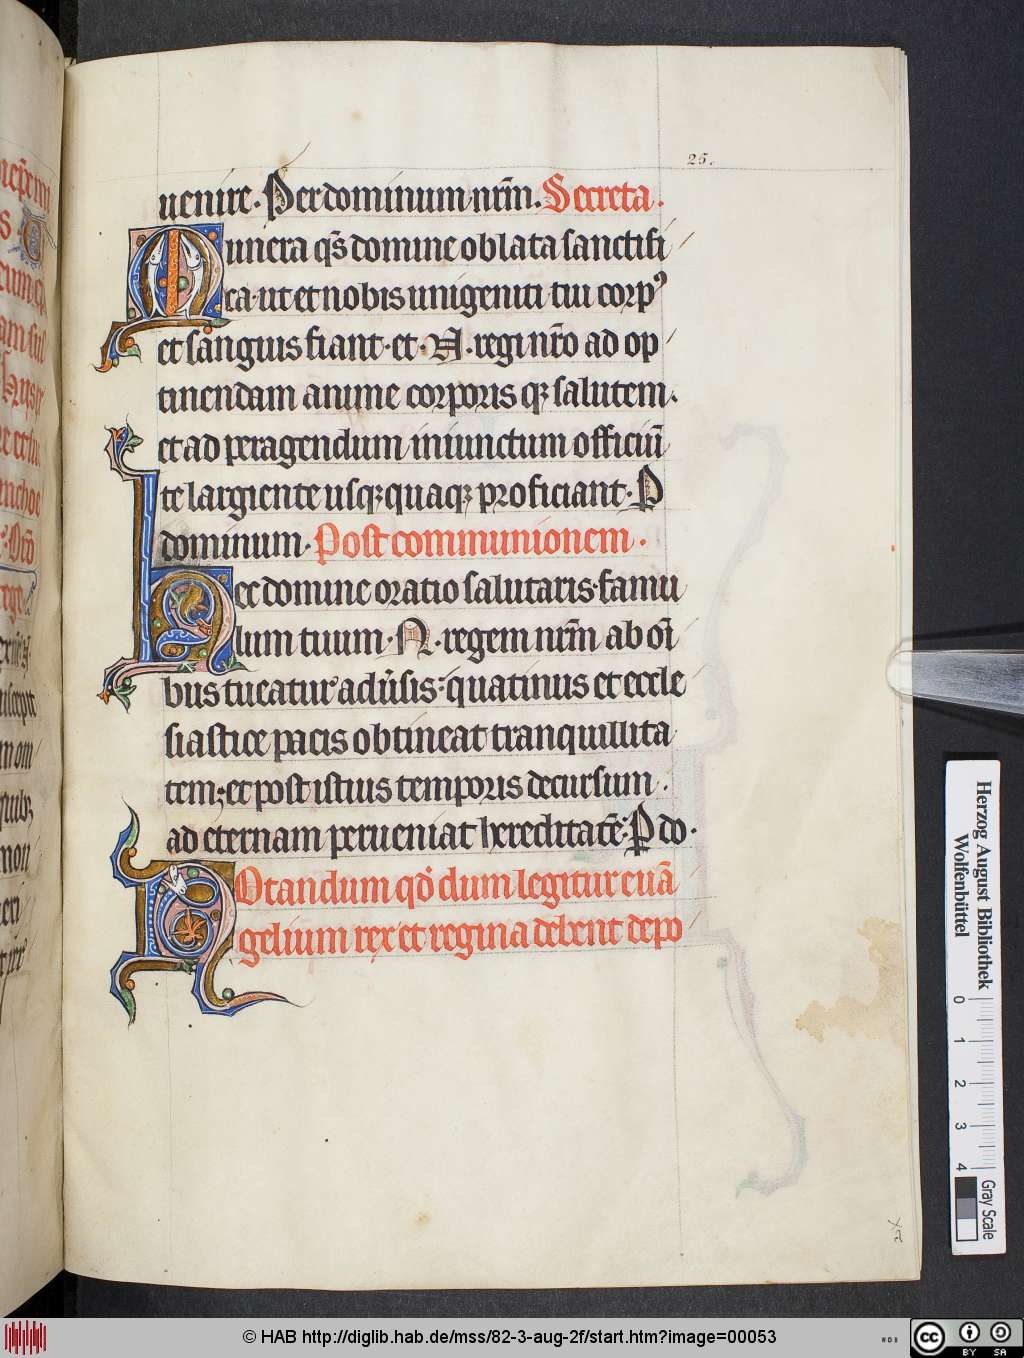 25.
uenire. Per dominum nr̄m. Secreta.
Munera qs̄ domine oblata sanctifi
ca. ut et nobis unigeniti tui corpꝰ
et sanguis fiant. et. N. regi nr̄o ad op
tinendam anime corporis qꝫ salutem.
et ad peragendum iniunctum officiū
te largiente usqꝫ quaqꝫ proficiant. P̄
dominum. Post communionem.
Hec domine oratio salutaris famu
lum tuum. N. regem nr̄m ab oī
bus tueatur adu̓sis: quatinus et eccle
siastice pacis obtineat tranquillita
tem; et post istius temporis decursum.
ad eternam perueniat hereditatē. P̄ do.
NOtandum qd̓ dum legitur euā
gelium rex et regina debent depo
Herzog August Bibliothek
Wolfenbüttel
0 1 2 3 4
Gray Scale
© HAB http://diglib.hab.de/mss/82-3-aug-2f/start.htm?image=00053
cc BY SA